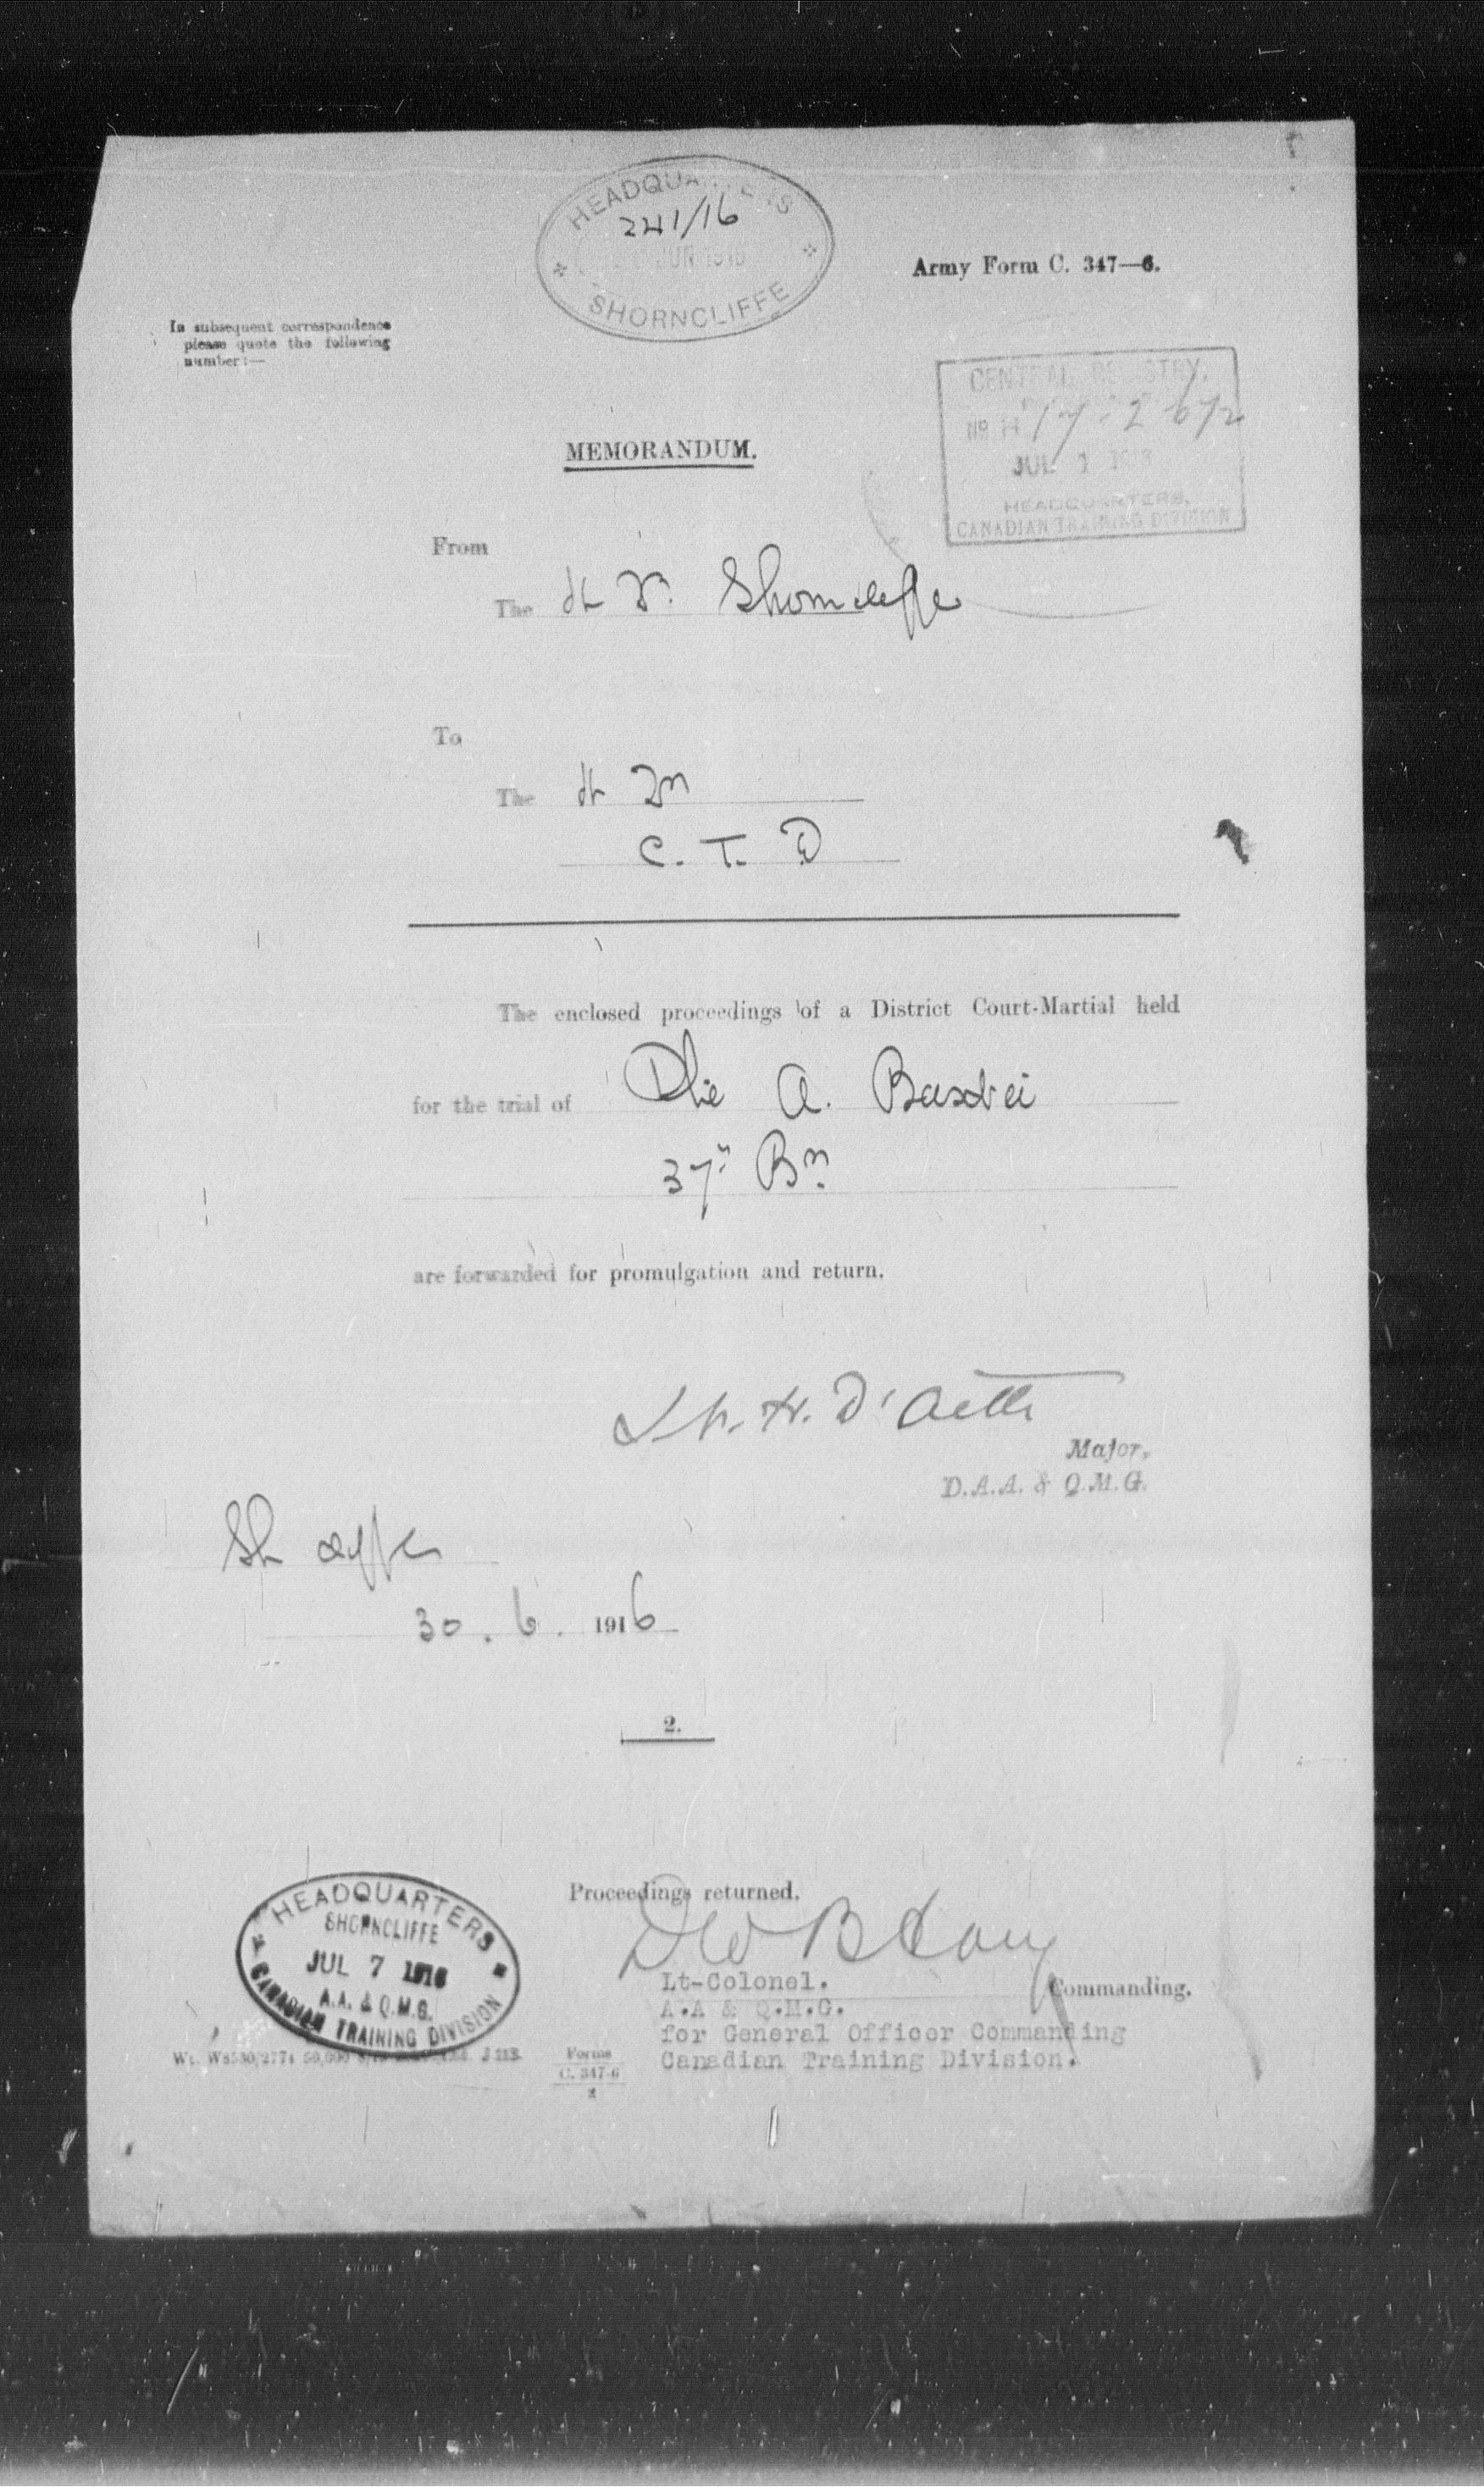 HEADQUARTERS
241/16
JUN 1916
SHORNCLIFFE
Army Form C. 347—6.
In subsequent correspondence
please quote the following
number:—
CENTRAL REGISTRY,
JUL 1
HEADQUARTERS,
CANADIAN TRAINING DIVISION
MEMORANDUM.
From
The Shorncliffe
To
The
C. T. D
The enclosed proceedings of a District Court-Martial held
for the trial of Pte A.
37th Bn
are forwarded for promulgation and return.
Major,
D.A.A. & Q.M.G.
30. 6. 1916
2.
Proceedings returned.
HEADQUARTERS
SHORNCLIFFE
JUL 7 1916
A.A. & Q.M.G.
CANADIAN TRAINING DIVISION
Lt-Colonel. Commanding.
A.A & Q.M.G.
for General Officer Commanding
Canadian Training Division.
Forms
C. 347-6